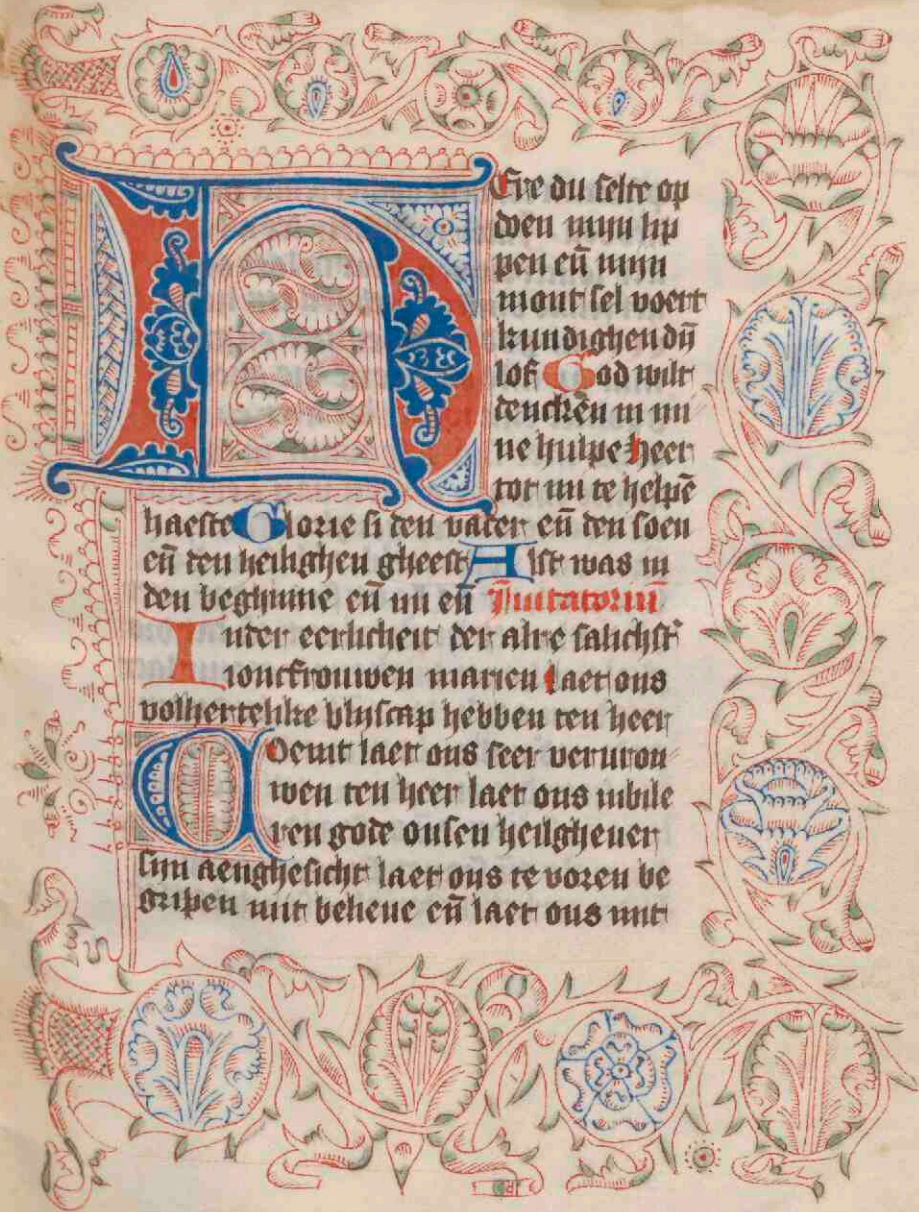 HEre du selte op
doen mijn lip
pen eñ mijn
mont sel voert
kundighen dijn̄
lof God wilt
dencken in mi
ne hulpe heer
tot mi te helpē
haeste Glorie si den vader eñ den soen
eñ den heilighen gheest Alst was in
den beghinne eñ nu eñ Inuitatoriū
In der eerlicheit der alre salichst
ioncfrouwen marien laet ons
volhertelike bliscap hebben den heer
Coemt laet ons seer verurou
wen den heer laet ons iubile
ren gode onsen heilgheuer
sijn aenghesicht laet ons te voren be
gripen mit beliene eñ laet ons mit